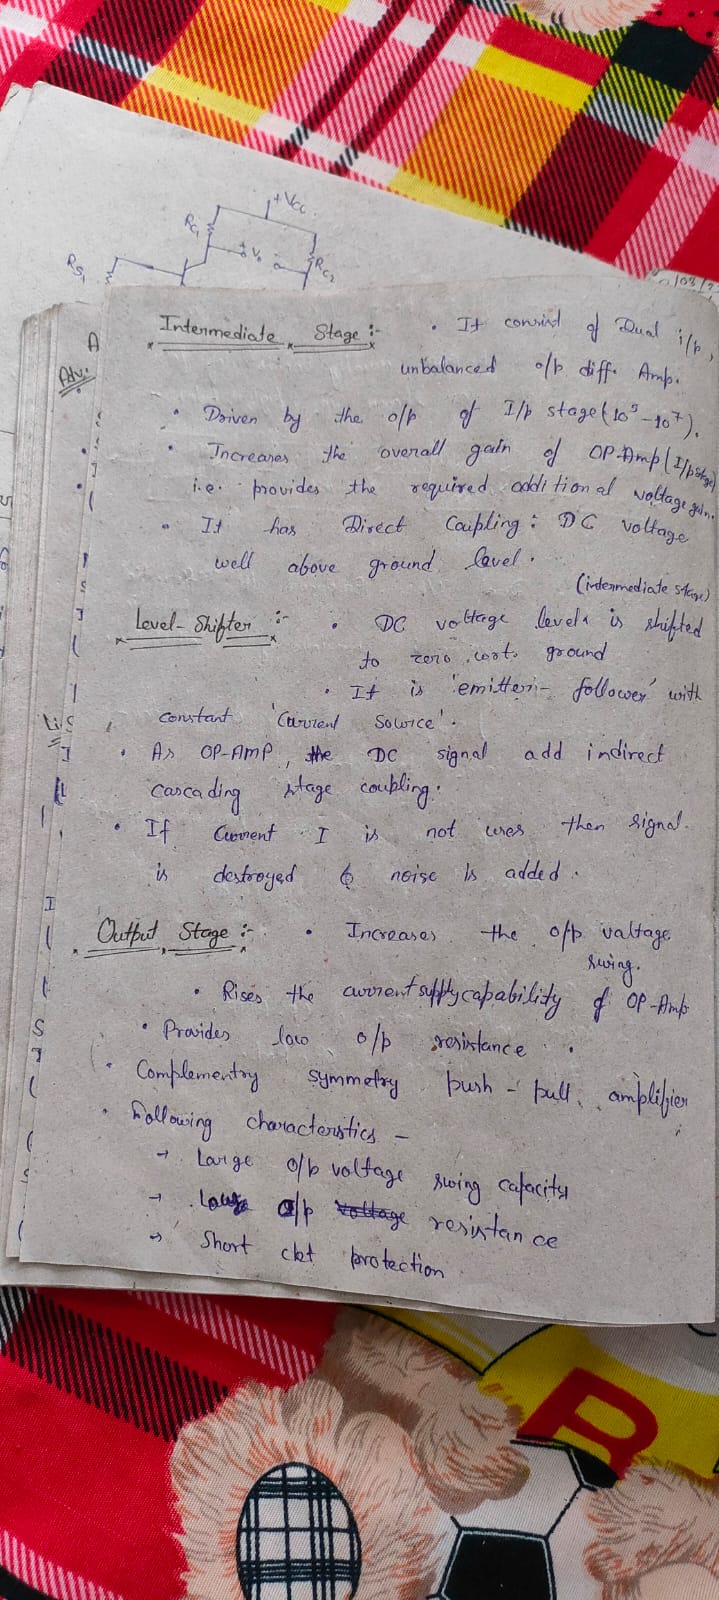 +Vcc
Rc1
+ Vo -
Rc2
Rs1
Intermediate Stage :- • It consist of Dual i/p,
unbalanced o/p diff. Amp.
• Driven by the o/p of I/p stage (10⁵-10⁷).
• Increases the overall gain of OP-Amp (I/p stage)
i.e. provides the required additional voltage gain.
• It has Direct Coupling : DC voltage
well above ground level.
(intermediate stage)
Level-Shifter :- • DC voltage levels is shifted
to zero w.r.t. ground
• It is 'emitter- follower' with
constant 'Current Source'.
• As OP-AMP, the DC signal add indirect
cascading stage coupling.
• If Current I is not uses then signal
is destroyed & noise is added.
Output Stage :- • Increases the o/p valtage
swing.
• Rises the current supply capability of OP-Amp
• Provides low o/p resistance.
• Complementry symmetry push-pull amplifier
• Following characterstics -
→ Large o/p voltage swing capacity
→ Low o/p voltage resistance
→ Short ckt protection
Adv.